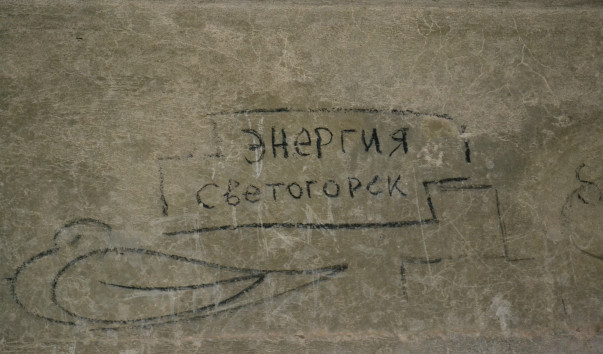 энергия
светогорск